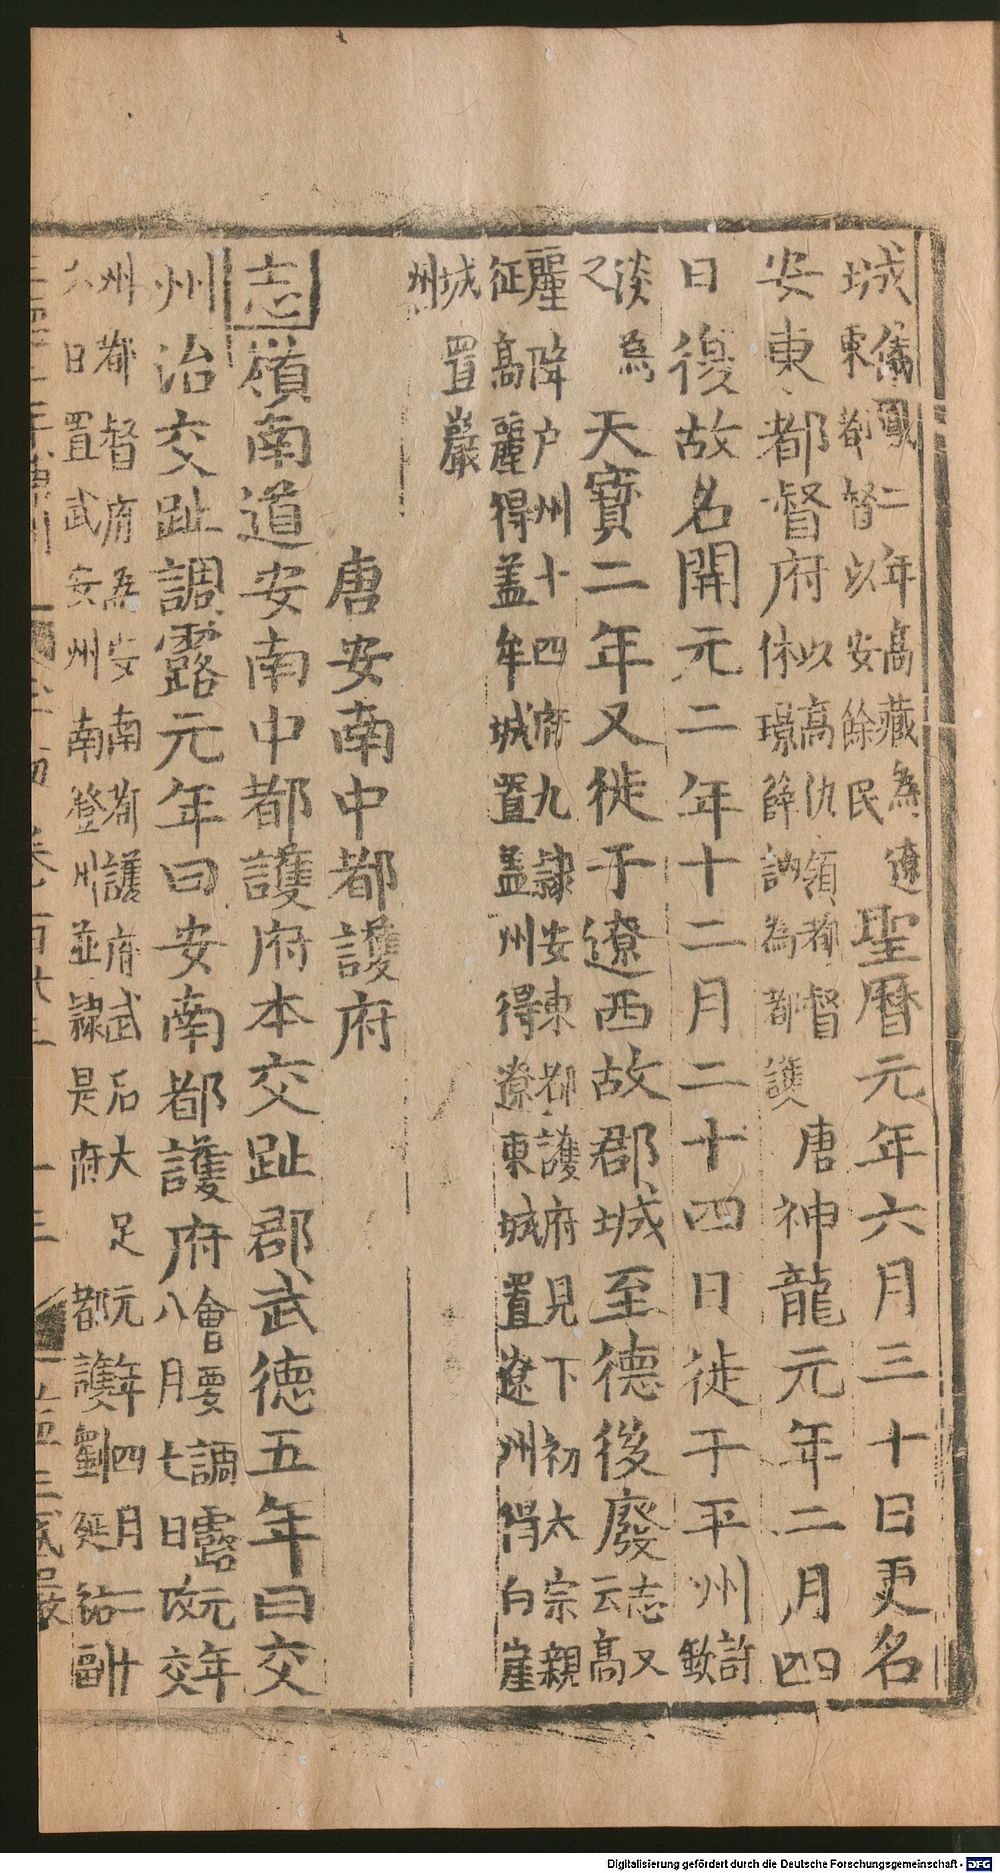 城儀鳳二年高藏為遼
城東都督以安餘民聖曆元年六月三十日更名
安東都督府以高仇領都督
休璟薛訥為都護唐神龍元年二月四
日復故名開元二年十二月二十四日徙于平州許
欽
淡為
又天寶二年又徙于遼西故郡城至德後廢志又
云高
麗降户州十四府九隸安東都護府見下初太宗親
征高麗得盖牟城置盖州得遼東城置遼州得白崖
城置巖
州
唐安南中都護府
志嶺南道安南中都護府本交趾郡武德五年曰交
州治交趾調露元年曰安南都護府會要調露元年
八月七日改交
州都督府為安南都護府武后大足元年四月二十
六日置武安州南登州並隸是府都護劉延祐副
Digitalisierung gefördert durch die Deutsche Forschungsgemeinschaft - DFG